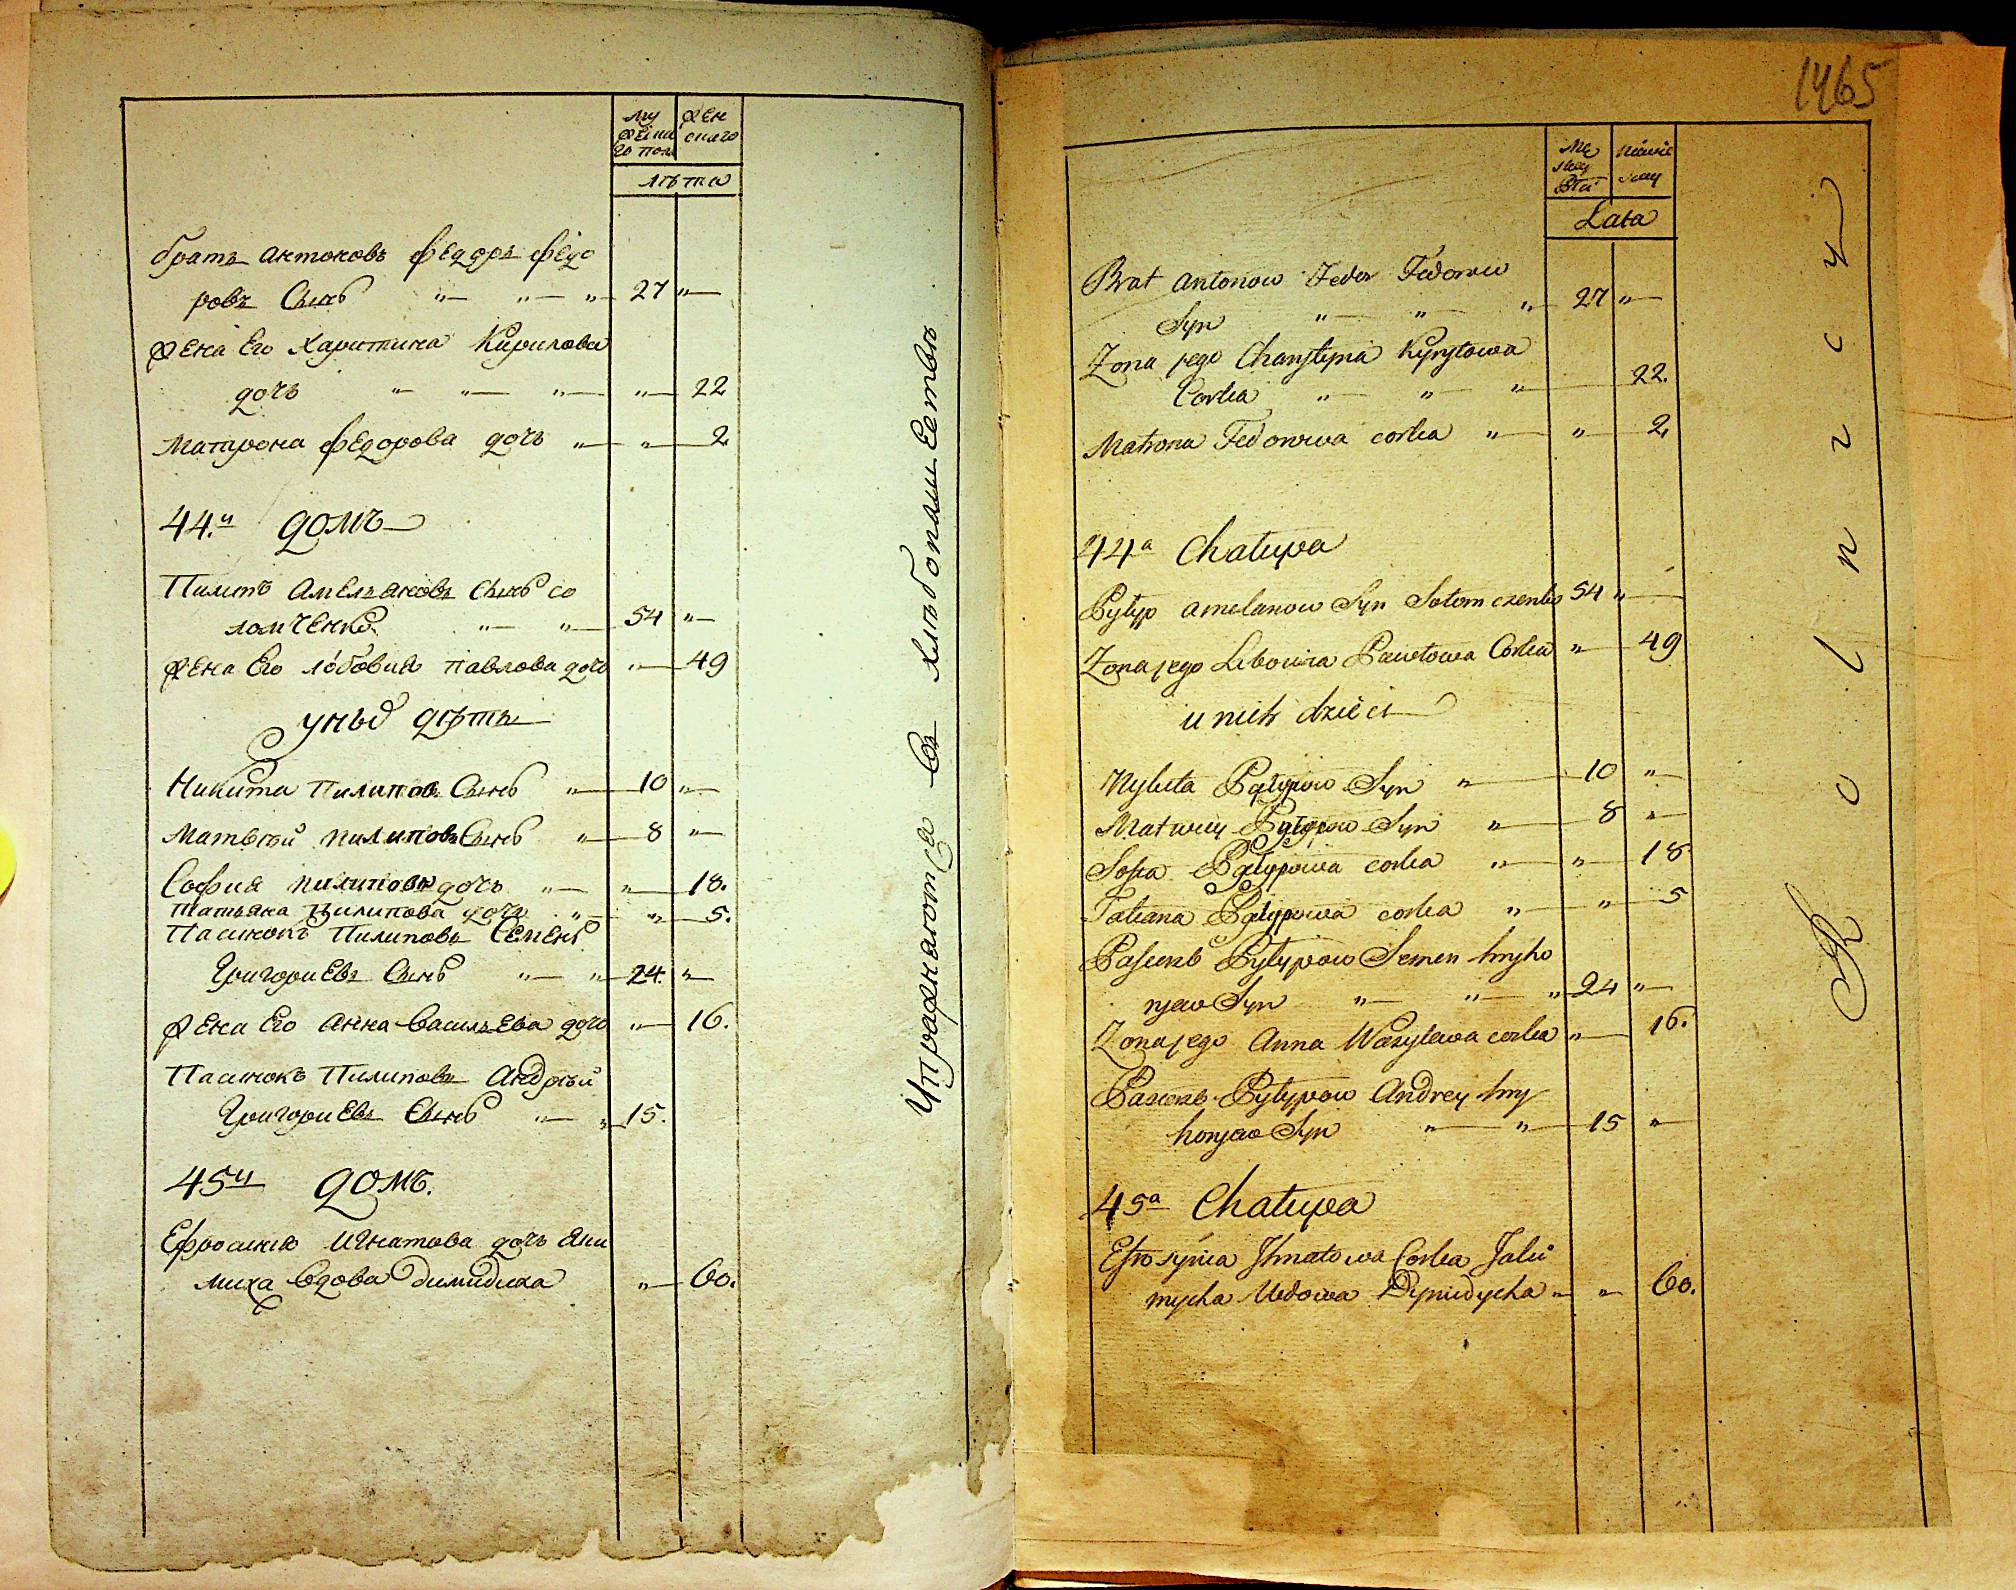 му
жеска
го пола
жен
скаго
лѣта
братъ антоновъ федоръ федо
ровъ сынъ " " " 27 "
жена его Харитина Кирилова
дочь " " " " 22
Матрона федорова дочь " " 2
44.й домъ
Пилипъ Амельяновъ сынъ со
ломченко " " 54 "
жена его любовия павлова дочь " 49
у ныхъ дѣты
Никита Пилиповъ сынъ " 10 "
Матвѣй пилиповъ сынъ " 8 "
София пилипова дочь " " 18.
татьяна пилипова дочь " " 5.
Пасинокъ Пилиповъ Семенъ
Григориевъ сынъ " " 24. "
жена его анна васильева дочь " 16.
Пасинокъ Пилиповъ Андрѣй
Григориевъ сынъ " " 15.
45й домъ.
Ефросиния Игнатова дочь Яки
миха вдова димидиха " 60.
Упражнаютца въ хлѣбопашественъ
1465
Mę
skey
Płci
niewie
skey
Lata
Brat Antonow Fedor Fedorow
Syn " " " 27 "
Zona jego Charytyna Kyryłowa
Corka " " " 22.
Matrona Fedorowa corka " " 2.
44a Chałupa
Pyłyp amelanow Syn Sołomczenko 54 "
Zona jego Lubowia Pawłowa Corka " 49
u nich dzieci
Nykita Pyłypow Syn " 10 "
Matwiy Pyłypow Syn " 8 "
Sofia Pyłypowa corka " " 18
Tatiana Pyłypowa corka " " 5
Pasienb Pyłypow Semen hryho
ryew Syn " " " 24 "
Zona jego Anna Wasylewa corka " 16.
Pasienb Pyłypow Andrey hry
horyew Syn " " 15 "
45a Chałupa
Efrosynia Ihnatowa Corka Jaki
mycha Wdowa Dymidycha " " 60.
Rolnicy